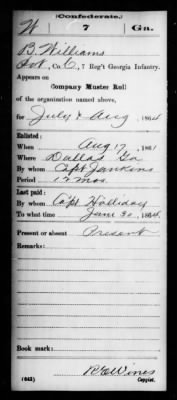 (Confederate.)
W 7 Ga.
B. Williams
Pvt, Co. C, 7 Reg't Georgia Infantry.
Appears on
Company Muster Roll
of the organization named above,
for July & Aug, 1864
Enlisted:
When Aug 17, 1861
Where Dallas Ga
By whom Capt Jenkins
Period 12 mos
Last paid:
By whom Capt Holliday
To what time June 30, 1864
Present or absent Present
Remarks:
Book mark:
R E Wines
(642) Copyist.